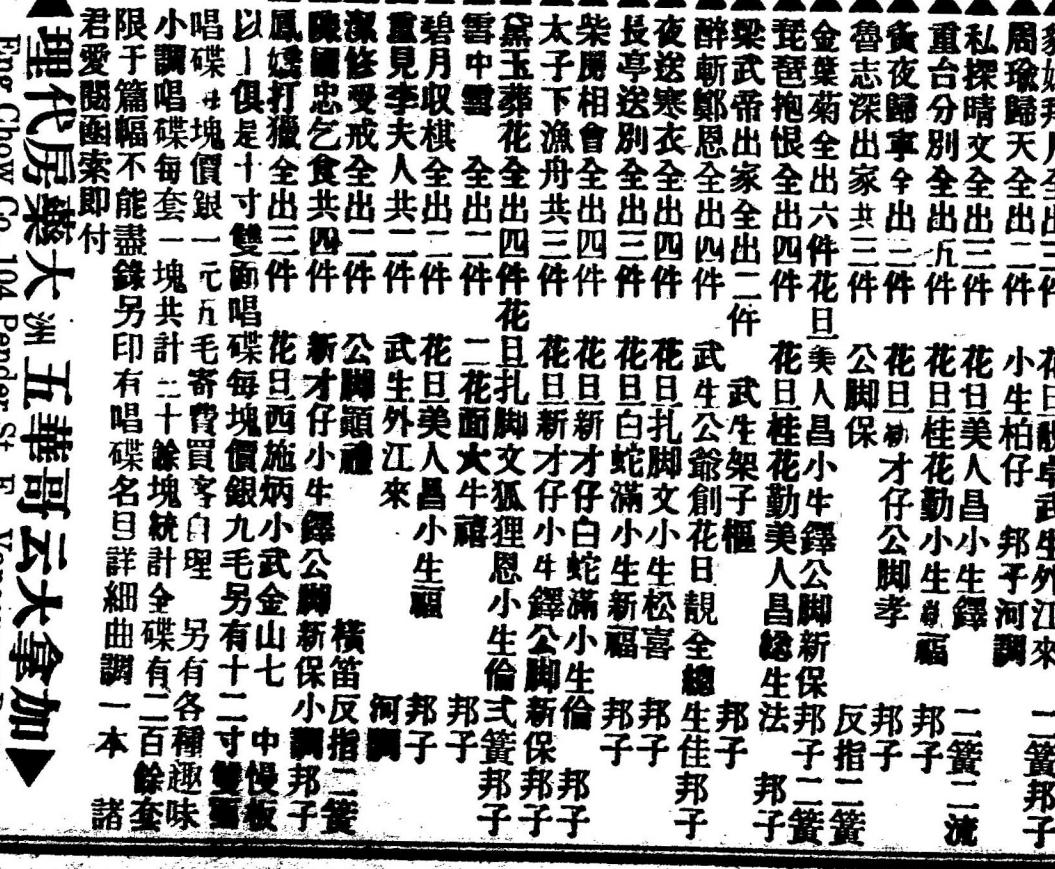 貂蟬拜月全出三件 花旦靚卓武生外江來 二簧邦子
周瑜歸天全出二件 小生柏仔 邦子河調
私探晴文全出三件 花旦美人昌小生鐸 二簧二流
重台分別全出九件 花旦桂花勤小生新福 邦子
黃夜歸寧全出三件 花旦新才仔公脚孝 邦子
魯志深出家共三件 公脚保 反指二簧
金葉菊全出六件花旦美人昌小生鐸公脚新保邦子二簧
琵琶抱恨全出四件 花旦桂花勤美人昌總生法 邦子
梁武帝出家全出二件 武生架子樞 邦子
醉斬鄭恩全出四件 武生公爺創花日靚全總生佳邦子
夜送寒衣全出四件 花旦扎脚文小生松喜 邦子
長亭送別全出三件 花旦白蛇滿小生新福 邦子
柴房相會全出四件 花旦新才仔白蛇滿小生倫 邦子
太子下漁舟共三件 花旦新才仔小生鐸公脚新保邦子
黛玉葬花全出四件花旦扎脚文狐狸恩小生倫弍簧邦子
雪中雪 全出二件 二花面大牛禧 邦子
碧月収棋全出二件 花旦美人昌小生福 邦子
重見李夫人共二件 武生外江來 河調
潔修受戒全出二件 公脚顯禮 橫笛反指二簧
陳國忠乞食共四件 新才仔小生鐸公脚新保小調邦子
鳳嬌打獵全出三件 花旦西施炳小武金山七 中慢板
以上俱是十寸雙面唱碟每塊價銀九毛另有十二寸雙面
唱碟每塊價銀一元五毛寄費買客自理 另有各種趣味
小調唱碟每套一塊共計二十餘塊統計全碟有二百餘套
限于篇幅不能盡錄另印有唱碟名目詳細曲調一本 諸
君愛閱函索即付
加拿大云哥華五洲大藥房代理
Fng Chow Co. 104 Pender St. E.